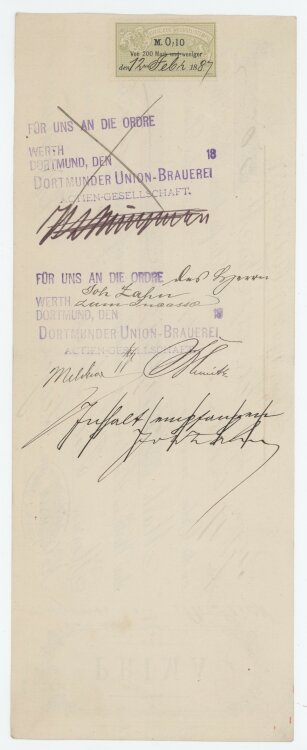 M. 0,10
Von 200 Mark und weniger
den 12 Febr 1887
FÜR UNS AN DIE ORDRE
WERTH
DORTMUND, DEN 18
DORTMUNDER UNION-BRAUEREI
ACTIEN-GESELLSCHAFT.
FÜR UNS AN DIE ORDRE des Herrn
Joh Zahn
WERTH zum Incasso
DORTMUND, DEN 18
DORTMUNDER UNION-BRAUEREI
ACTIEN-GESELLSCHAFT.
Inhalt empfangen
Joh Zahn